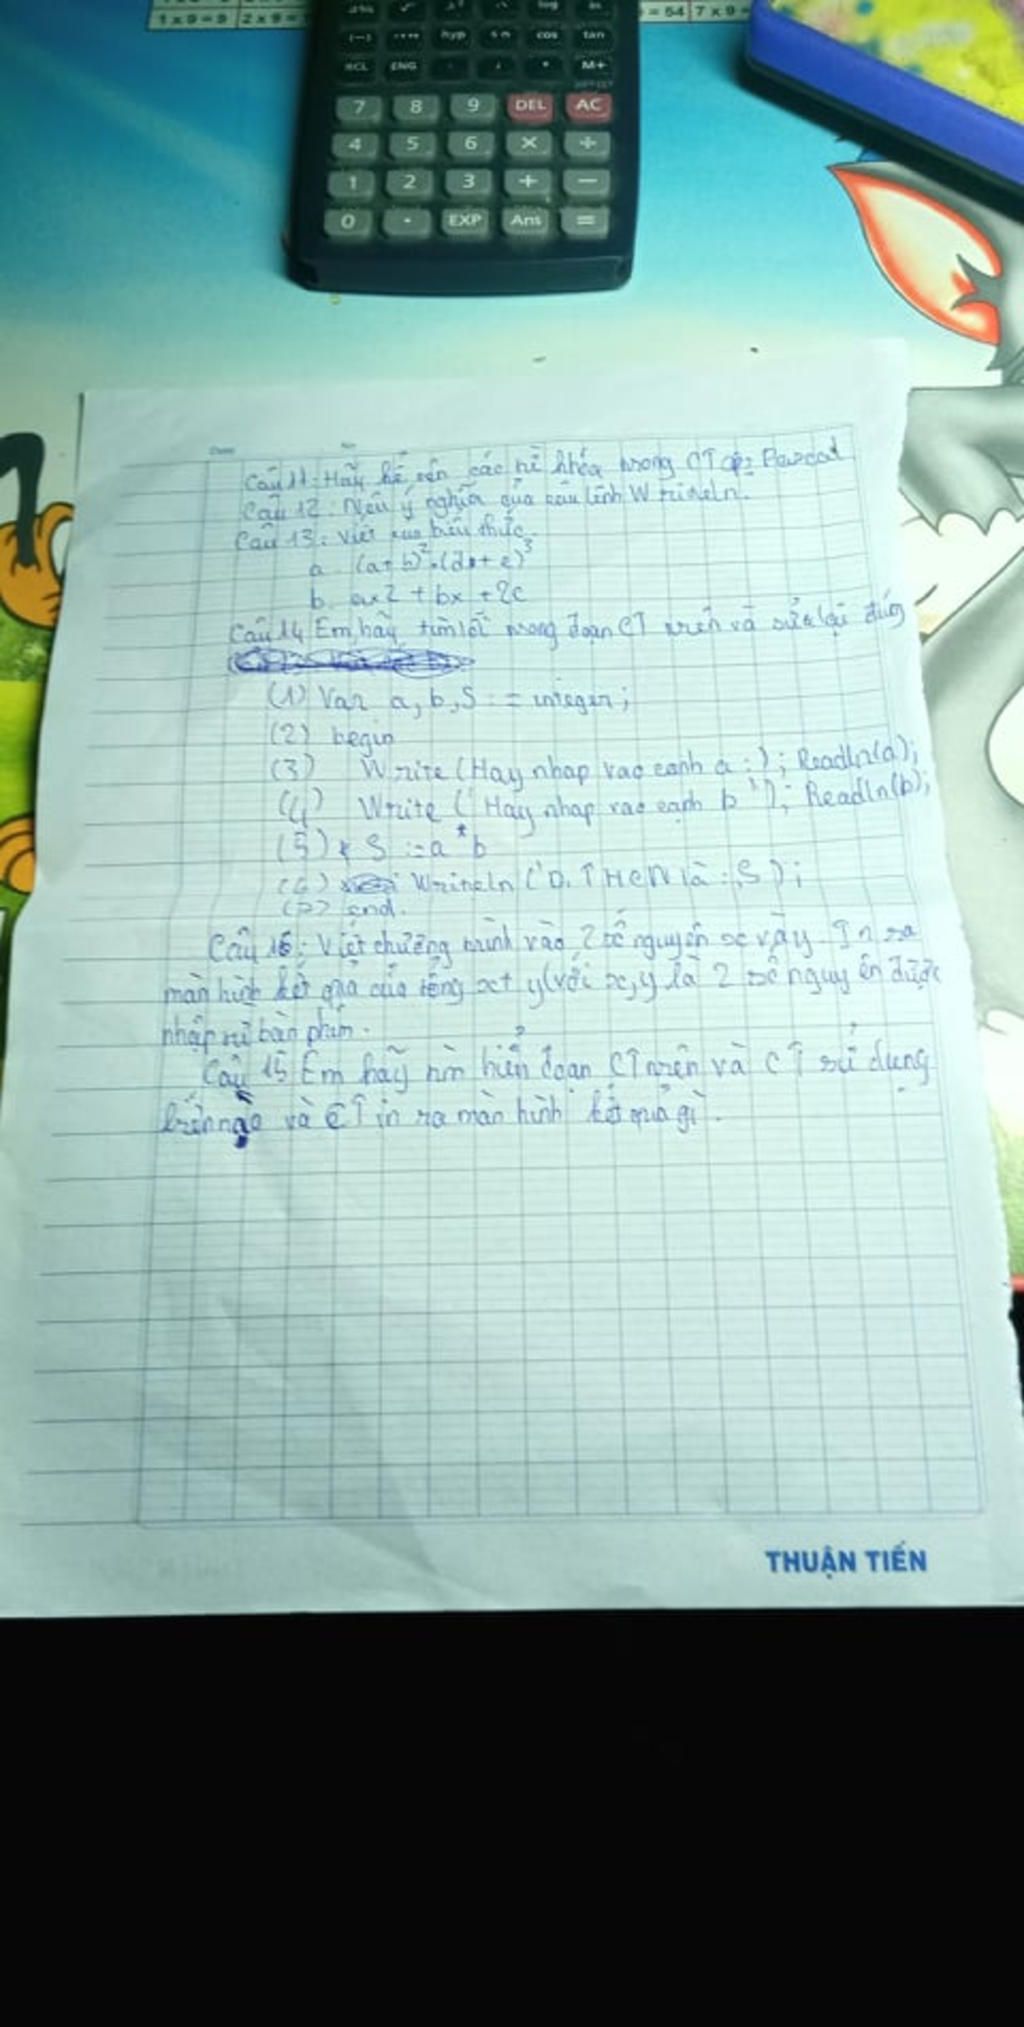 1 x 9 = 9 2 x 9 = = 54 7 x 9 =
log ln
(−) hyp cos tan
RCL ENG M+
7 8 9 DEL AC
4 5 6 × ÷
1 2 3 + −
0 · EXP Ans =
Câu 11: Hãy kể tên các từ khóa trong CT Pascal
Câu 12: Nêu ý nghĩa của câu lệnh Writeln.
Câu 13: Viết biểu thức
a. (a+b)²·(d+e)³
b. ax2 + bx + 2c
Câu 14 Em hãy tìm lỗi trong đoạn CT trên và sửa lại đúng
(1) Var a, b, S : = integer;
(2) begin
(3) Write (Hay nhap vao canh a : ) ; Readln(a);
(4) Write (' Hay nhap vao canh b '); Readln(b);
(5) S := a * b
(6) Writeln ('D. T HCN là : ,S ) ;
(7) end.
Câu 16: Viết chương trình vào 2 số nguyên x và y. In ra
màn hình kết quả của tổng x + y (với x, y là 2 số nguyên được
nhập từ bàn phím.
Câu 15 Em hãy tìm hiểu đoạn CT trên và CT sử dụng
biến nào và CT in ra màn hình kết quả gì.
THUẬN TIẾN